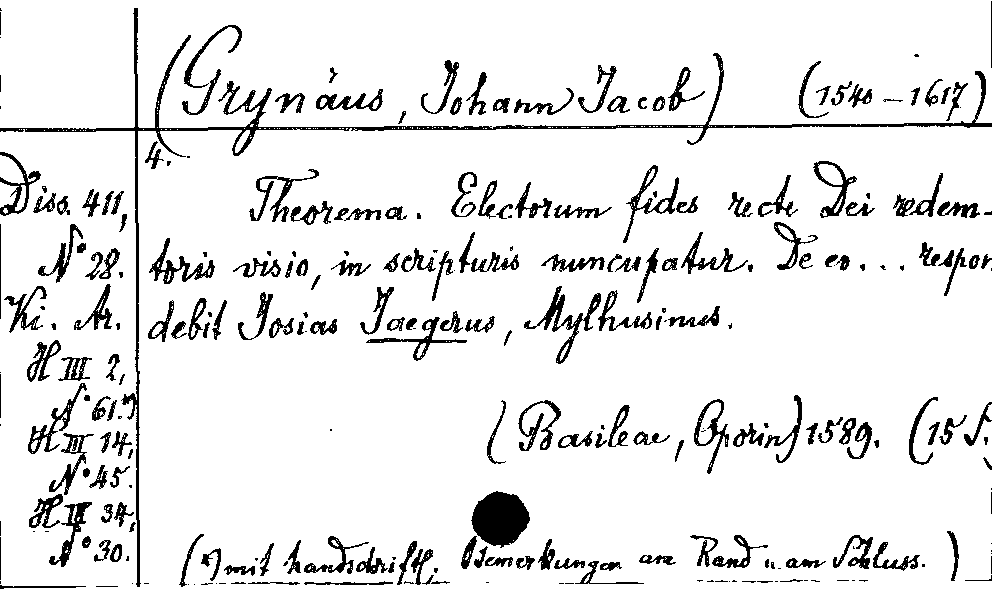 (Grynäus, Johann Jacob) (1540-1617)
4.
Diss. 411,
N° 28.
Ki. Ar.
H III 2,
N° 61.*)
H III 14,
N° 45.
H III 34,
N° 30.
Theorema. Electorum fides recte Dei redem-
toris visio, in scripturis nuncupatur. De eo... respon
debit Josias Jaegerus, Mylhusinus.
(Basileae, Oporin) 1589. (15 S.)
(*) mit handschriftl. Bemerkungen am Rand u. am Schluss.)